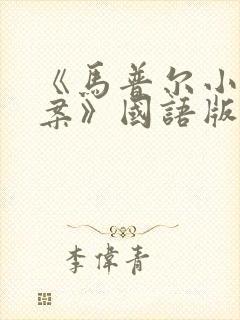 《馬普尔小
案》國語版
李偉青